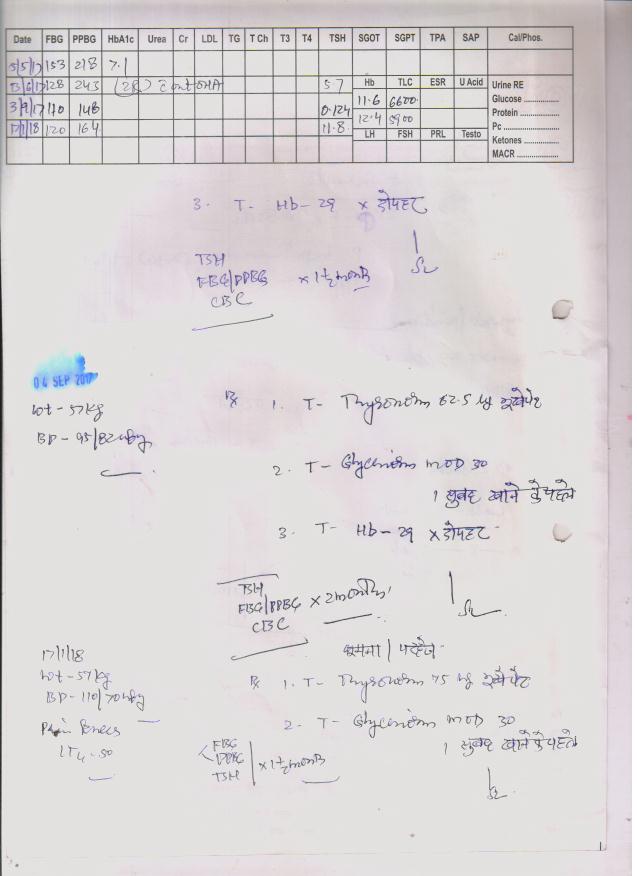 Date FBG PPBG HbA1c Urea Cr LDL TG T Ch T3 T4 TSH SGOT SGPT TPA SAP Cal/Phos.
5/5/17 153 218 7.1
3/6/17 128 243 5.7 Hb TLC ESR U Acid Urine RE
3/9/17 110 148 0.124 11.6 6600 Glucose ..............
Protein ................
17/1/18 120 164 11.8 12.4 5900 Pc .......................
LH FSH PRL Testo Ketones ..............
MACR .................
3. T- Hb-29 x दोपहर
TSH
FBG/PPBG x 1½ month
CBC
04 SEP 2017
wt - 57 kg
BP - 95/82 mmHg
Rx 1. T- Thyronorm 62.5 ug भूखेपेट
2. T- Glycinorm MOD 30
1 सुबह खाने के पहले
3. T- Hb-29 x दोपहर
TSH
FBG/PPBG x 2 months
CBC
घूमना / परहेज
17/1/18
wt - 57 kg
BP - 110/70 mmHg
Rx 1. T- Thyronorm 75 ug भूखेपेट
2. T- Glycinorm MOD 30
1 सुबह खाने के पहले
Pain Knees
LT4 - 50
FBG
PPBG
TSH x 1½ month